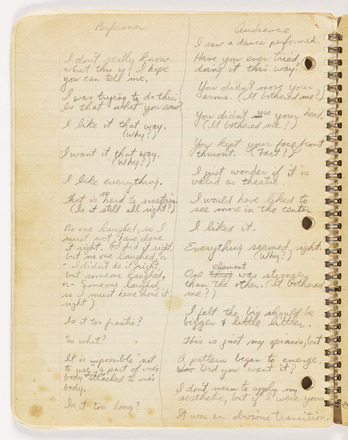 Performer
I don't really know
what this is. I hope
you can tell me.
I was trying to do this.
Is that what you saw?
I like it that way.
(Why?)
I want it that way.
(Why?)
I like everything.
That is so hard to sustain.
(Is it still all right?)
No one laughed, so I
must not have done
it right. (Or did it right,
but no one laughed, or
I didn't do it right
but someone laughed,
or someone laughed,
so I must have done it
right)
Is it too frantic?
So what?
It is impossible not
to use a part of one's
body attached to one's
body.
Is it too long?
Audience
I saw a dance performed.
Have you ever tried
doing it this way?
You didn't move your
arms. (It bothered me?)
You didn't use your head.
(It bothered me?)
You kept your face front
thruout. (Fact?)
I just wonder if it is
valid as theatre.
I would have liked to
see more in the center
I liked it.
Everything seemed right.
(Why?)
One element was stronger
than the other. (It bothered
me?)
I felt the big should be
bigger & little littler.
This is just my opinion, but
A pattern began to emerge.
Did you want it?
I don't mean to apply my
aesthetic, but if I were you
It was an obvious transition.